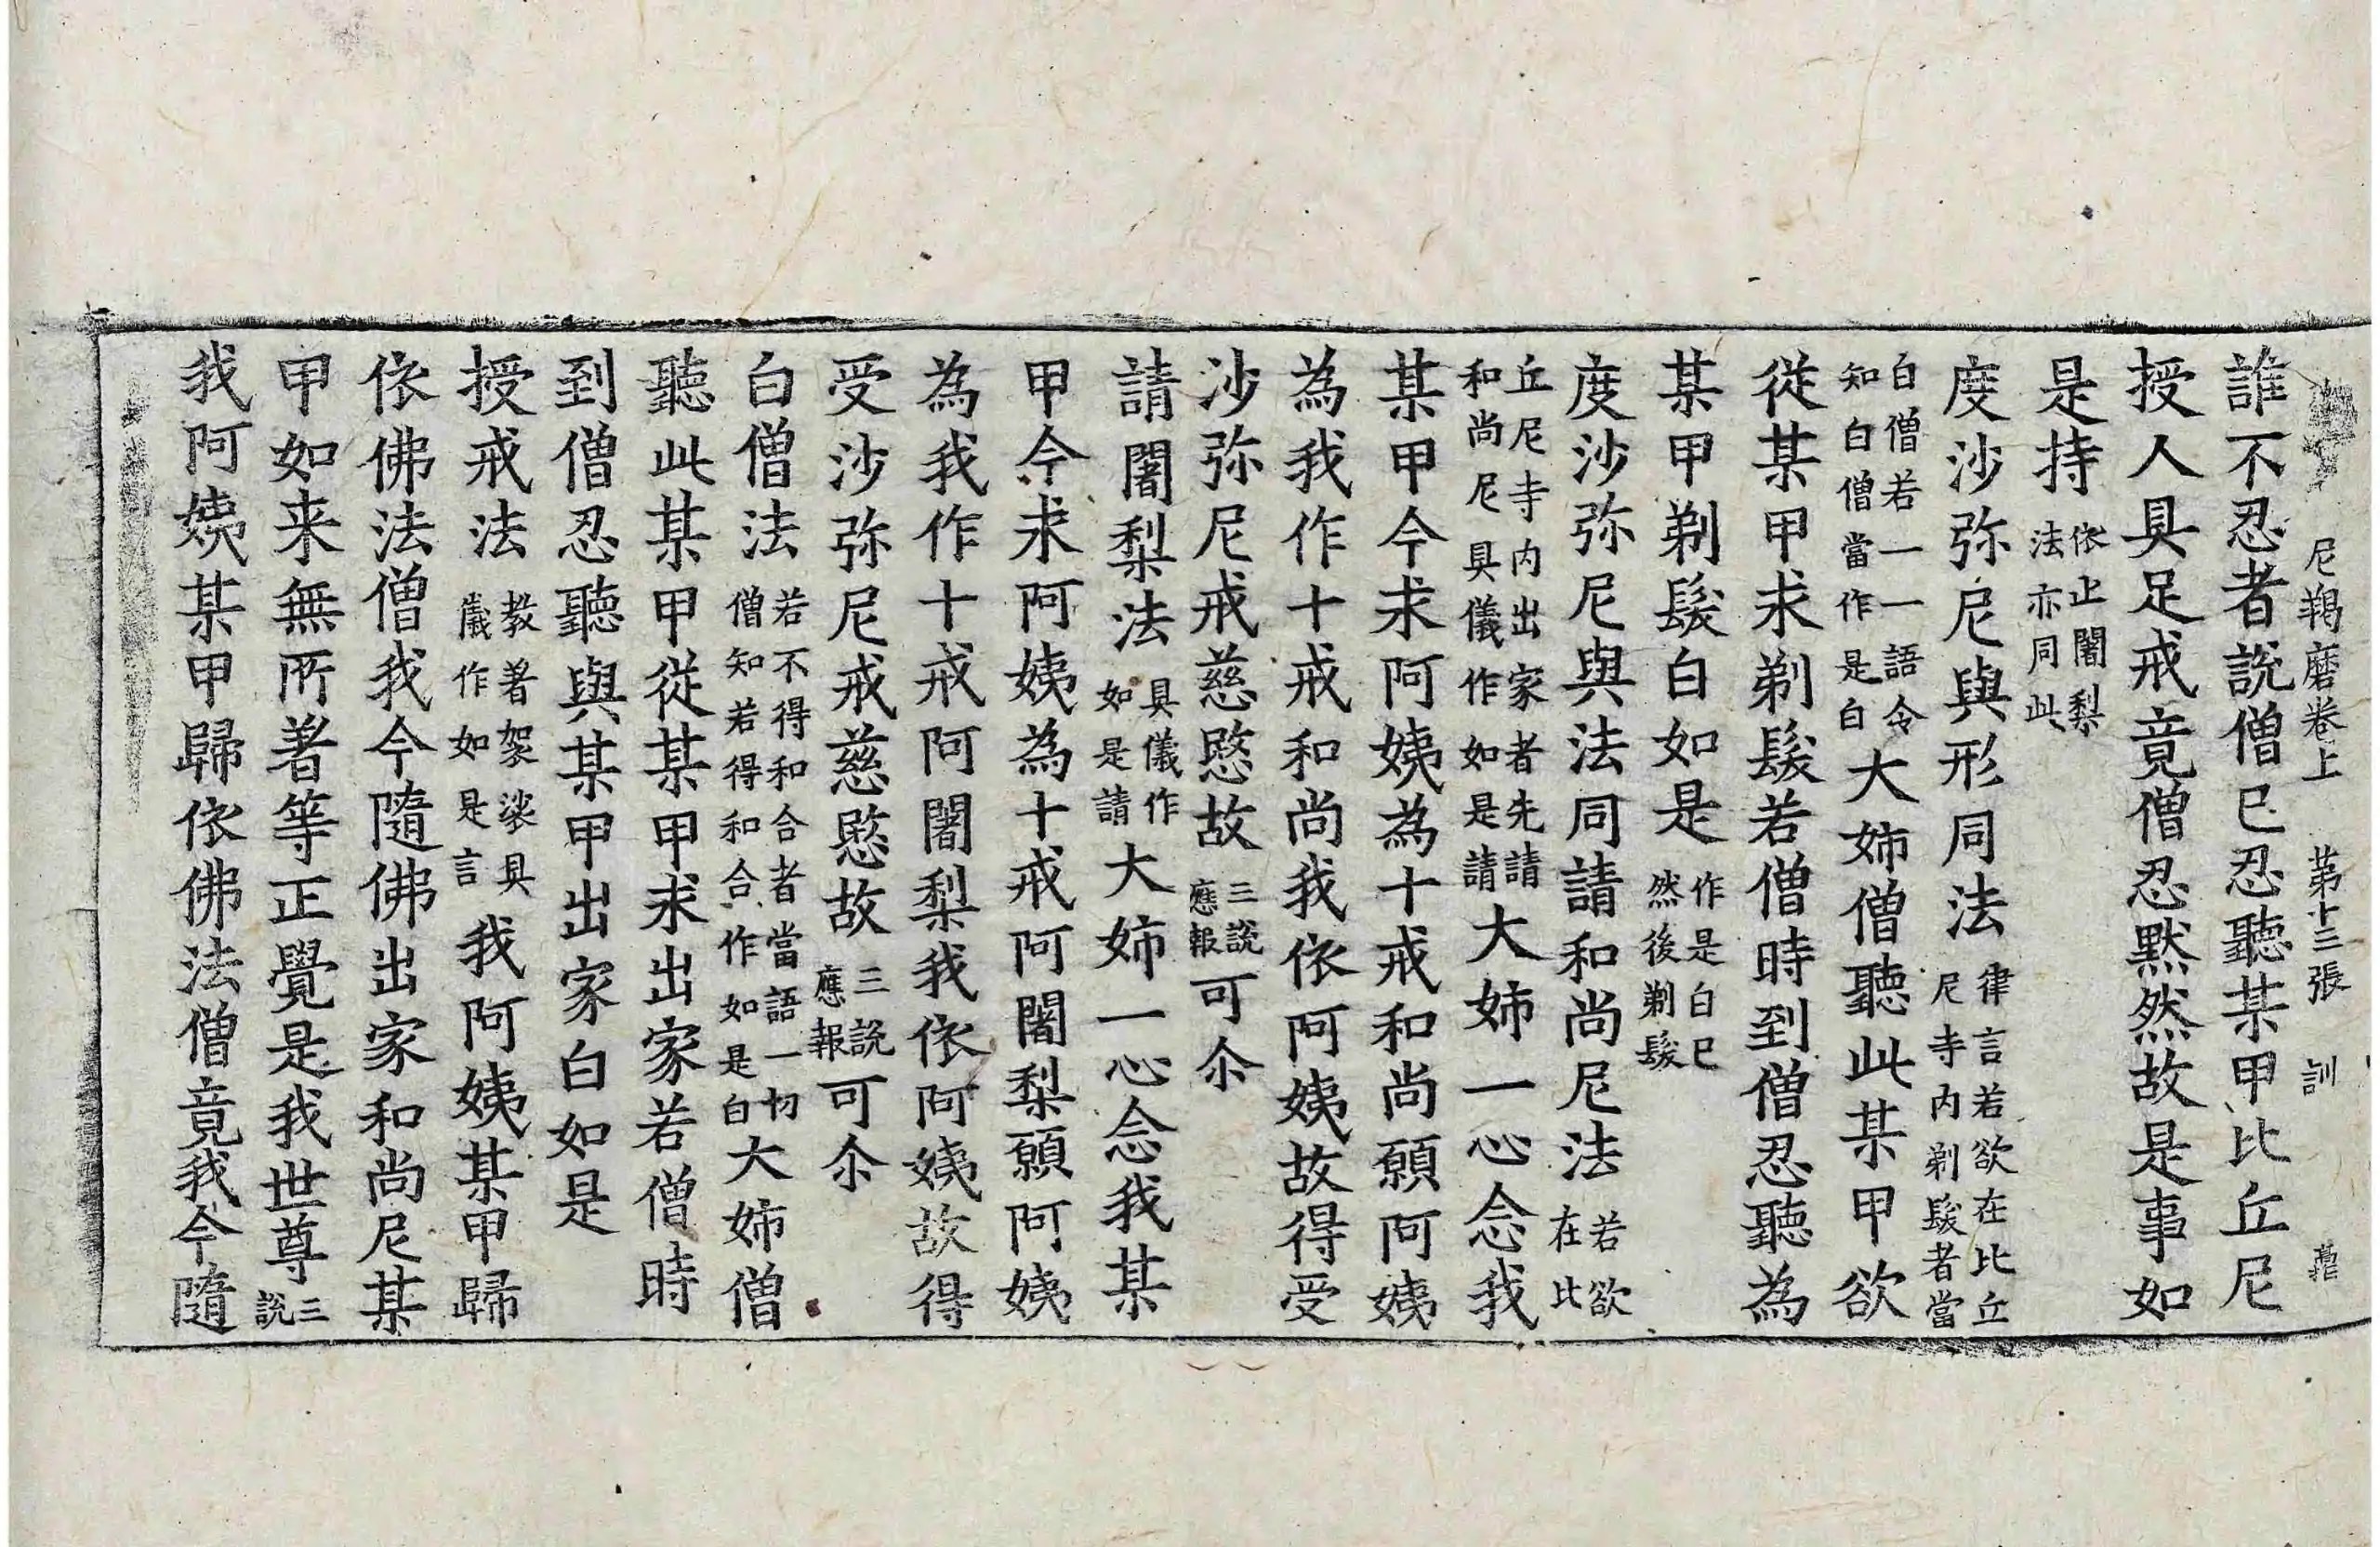 尼羯磨卷上 第十三張 訓
誰不忍者說僧已忍聽某甲比丘尼
授人具足戒竟僧忍默然故是事如
是持依止闍梨法亦同此
度沙弥尼與形同法律言若欲在比丘尼寺内剃髮者當
白僧若一一語令知白僧當作是白大姉僧聽此某甲欲
從某甲求剃髮若僧時到僧忍聽為
某甲剃髮白如是作是白已然後剃髮
度沙弥尼與法同請和尚尼法若欲在比
丘尼寺内出家者先請和尚尼具儀作如是請大姉一心念我
某甲今求阿姨為十戒和尚願阿姨
為我作十戒和尚我依阿姨故得受
沙弥尼戒慈愍故三說應報可尒
請闍梨法具儀作如是請大姉一心念我某
甲今求阿姨為十戒阿闍梨願阿姨
為我作十戒阿闍梨我依阿姨故得
受沙弥尼戒慈愍故三說應報可尒
白僧法若不得和合者當語一切僧知若得和合作如是白大姉僧
聽此某甲從某甲求出家若僧時
到僧忍聽與某甲出家白如是
授戒法教著袈裟具儀作如是言我阿姨某甲歸
依佛法僧我今隨佛出家和尚尼某
甲如来無所著等正覺是我世尊三說
我阿姨某甲歸依佛法僧竟我今隨